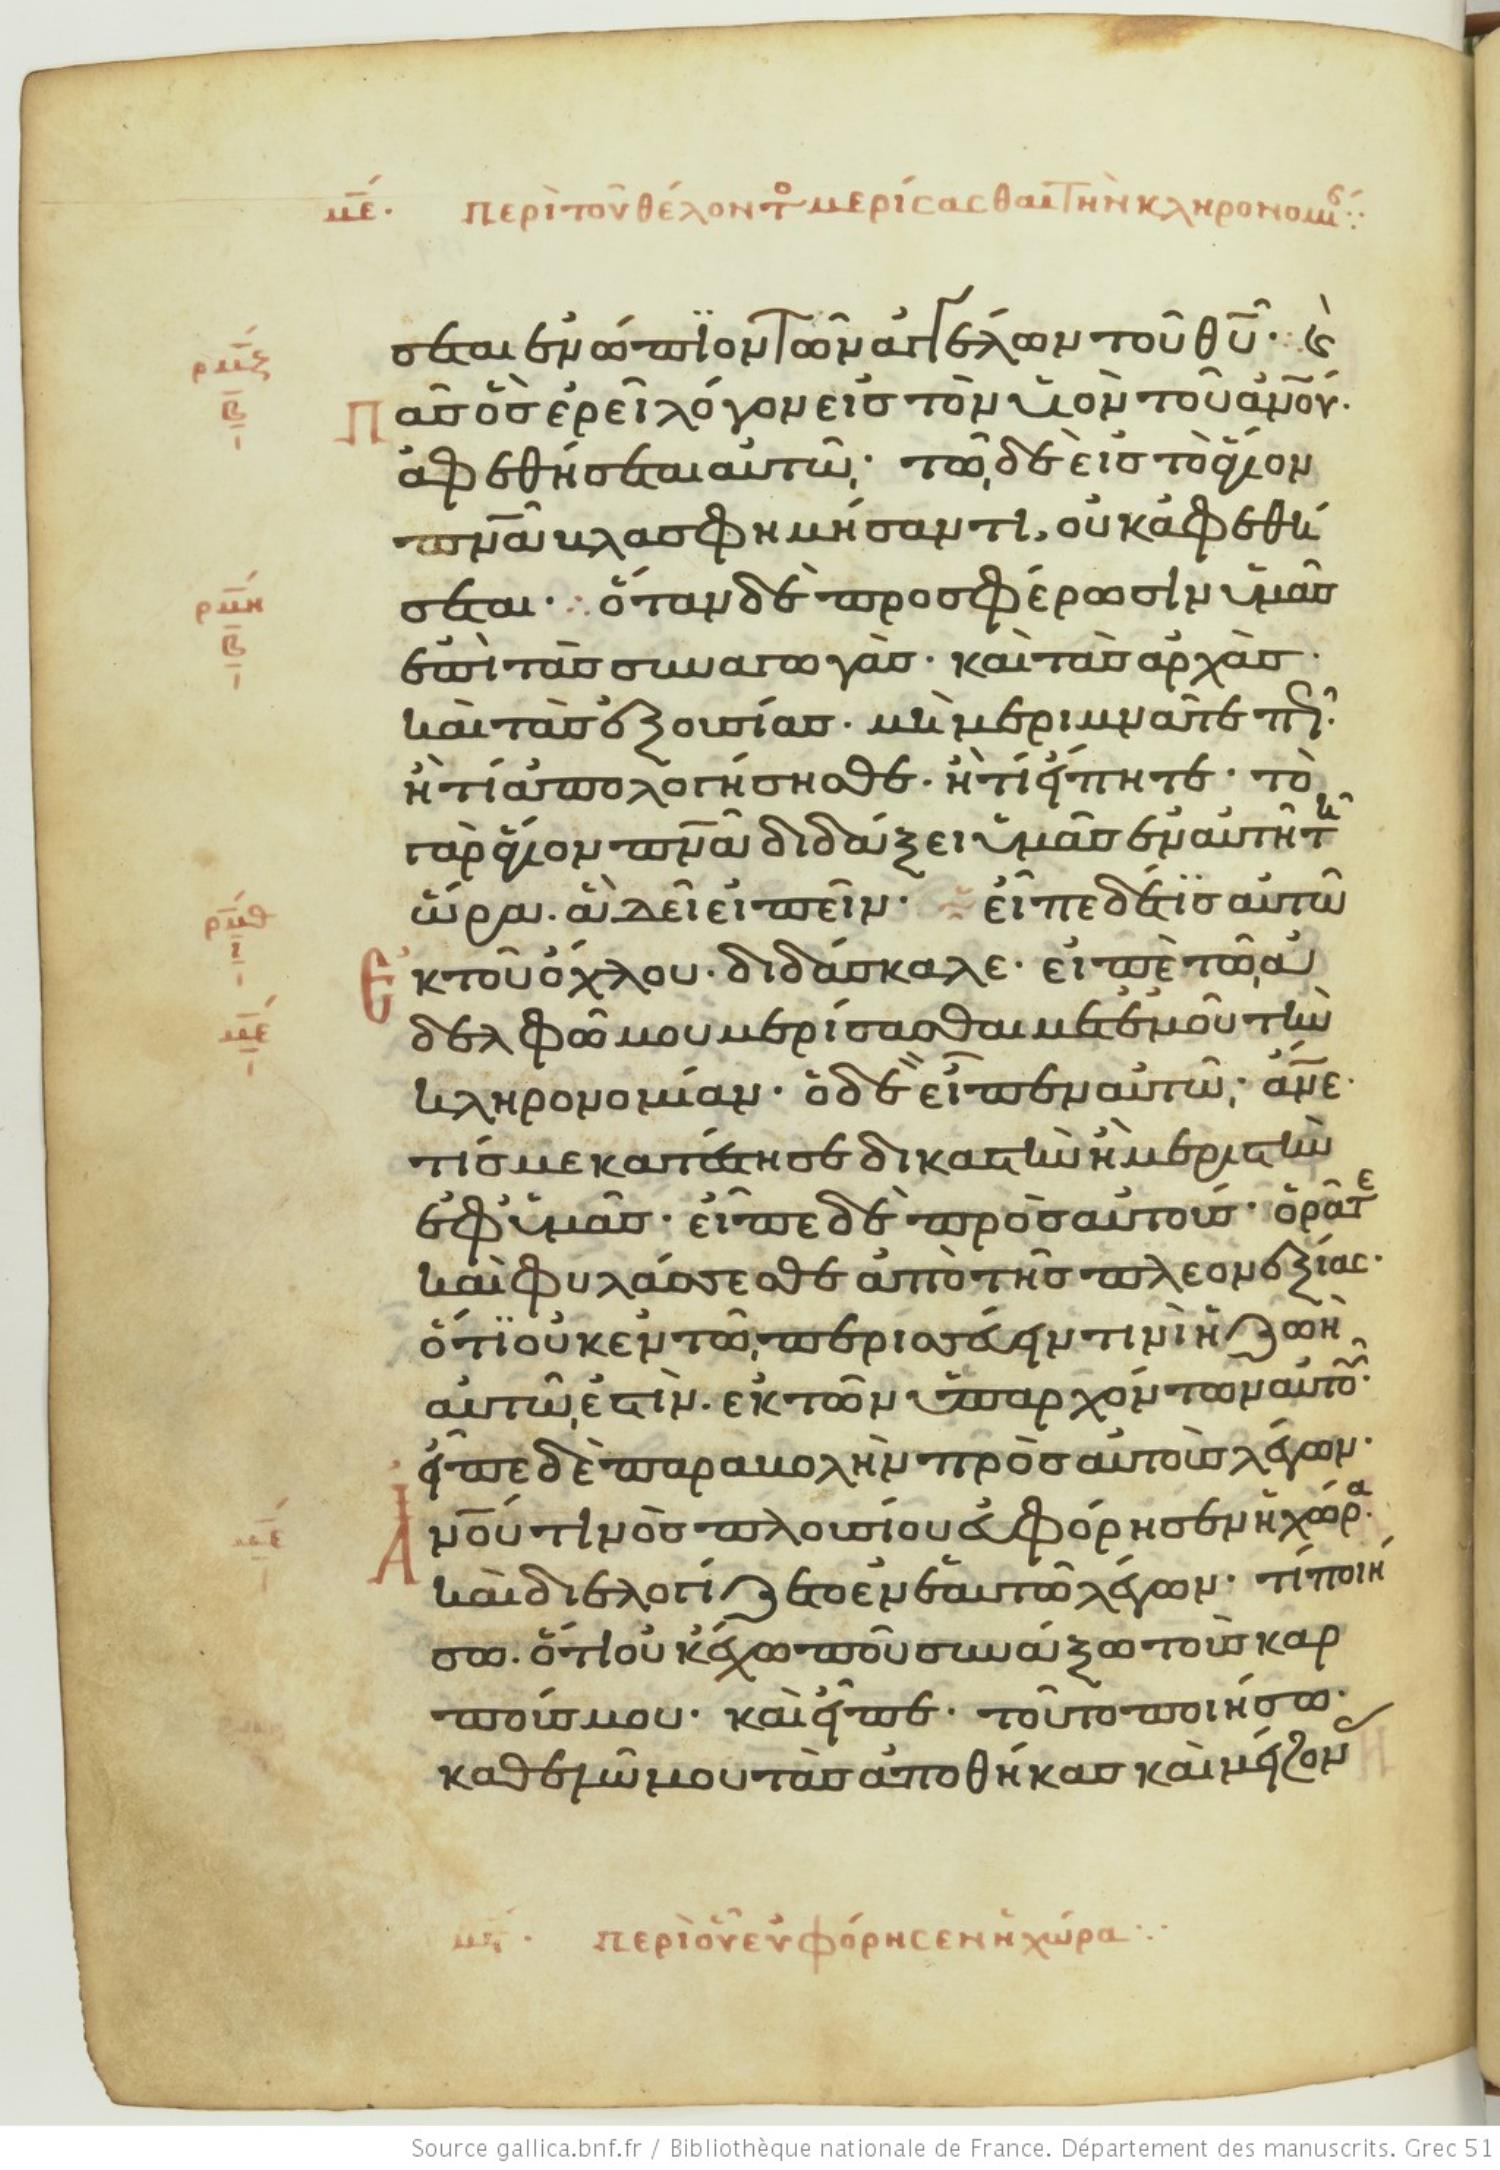 με. περὶ τοῦ θέλοντο μερίσασθαι τὴν κληρονομ
σεται ἐνώπϊον τῶν ἀγγέλων τοῦ θῦ· κ
ρμζ
β
Πᾶσ ὃσ ἐρεῖ λόγον εἰσ τὸν υἱὸν τοῦ ἀνου.
ἀφεθήσεται αὐτῶ· τῶ δὲ εἰσ τὸ ἅγιον
πνα βλασφημήσαντι, οὐκ ἀφεθή
ρμη
β
σεται· ὅταν δὲ προσφέρωσιν ὑμᾶσ
ἐπὶ τὰσ συναγωγὰσ· καὶ τὰσ ἀρχὰσ·
καὶ τὰσ ἐξουσίασ· μὴ μεριμνᾶτε πῶ·
ἢ τί ἀπολογήσησθε· ἢ τί εἴπητε· τὸ
γὰρ ἅγιον πνα διδάξει ὑμᾶσ ἐν αὐτῆ τῆ
ρμθ
ι
ὥρα. ἃ δεῖ εἰπεῖν· εἶπε δέ τϊσ αὐτῶ
ἐκ τοῦ ὄχλου· διδάσκαλε· εἰπὲ τῶ ἀ
με
δελφῶ μου μερίσασθαι μετ ἐμοῦ τὴν
κληρονομίαν· ὁ δὲ εἶπεν αὐτῶ· ἄνε·
τίσ με κατέστησε δικαστὴν ἢ μεριστὴν
ἐφ ὑμᾶσ· εἶπε δὲ πρὸσ αὐτούσ· ὁρᾶτε
καὶ φυλάσσεσθε ἀπὸ τῆσ πλεονεξίας·
ὅτϊ οὐκ ἐν τῶ περισσεύειν τινὶ ἡ ζωὴ
αὐτῶ ἐστὶν. ἐκ τῶν ὑπαρχόντων αὐτοῦ·
εἶπε δὲ παραβολὴν πρὸσ αὐτοὺσ λέγων·
με
Ἀνου τινὸσ πλουσίου εὐφόρησεν ἡ χώρα·
καὶ διελογίζετο ἐν ἑαυτῶ λέγων· τί ποιή
σω. ὅτι οὐκ ἔχω ποῦ συνάξω τοὺσ καρ
πούσ μου· καὶ εἶπε· τοῦτο ποιήσω·
καθελῶ μου τὰσ ἀποθήκασ καὶ μείζον
μϛ. περὶ οὗ εὐφόρησεν ἡ χώρα
Source gallica.bnf.fr / Bibliothèque nationale de France. Département des manuscrits. Grec 51